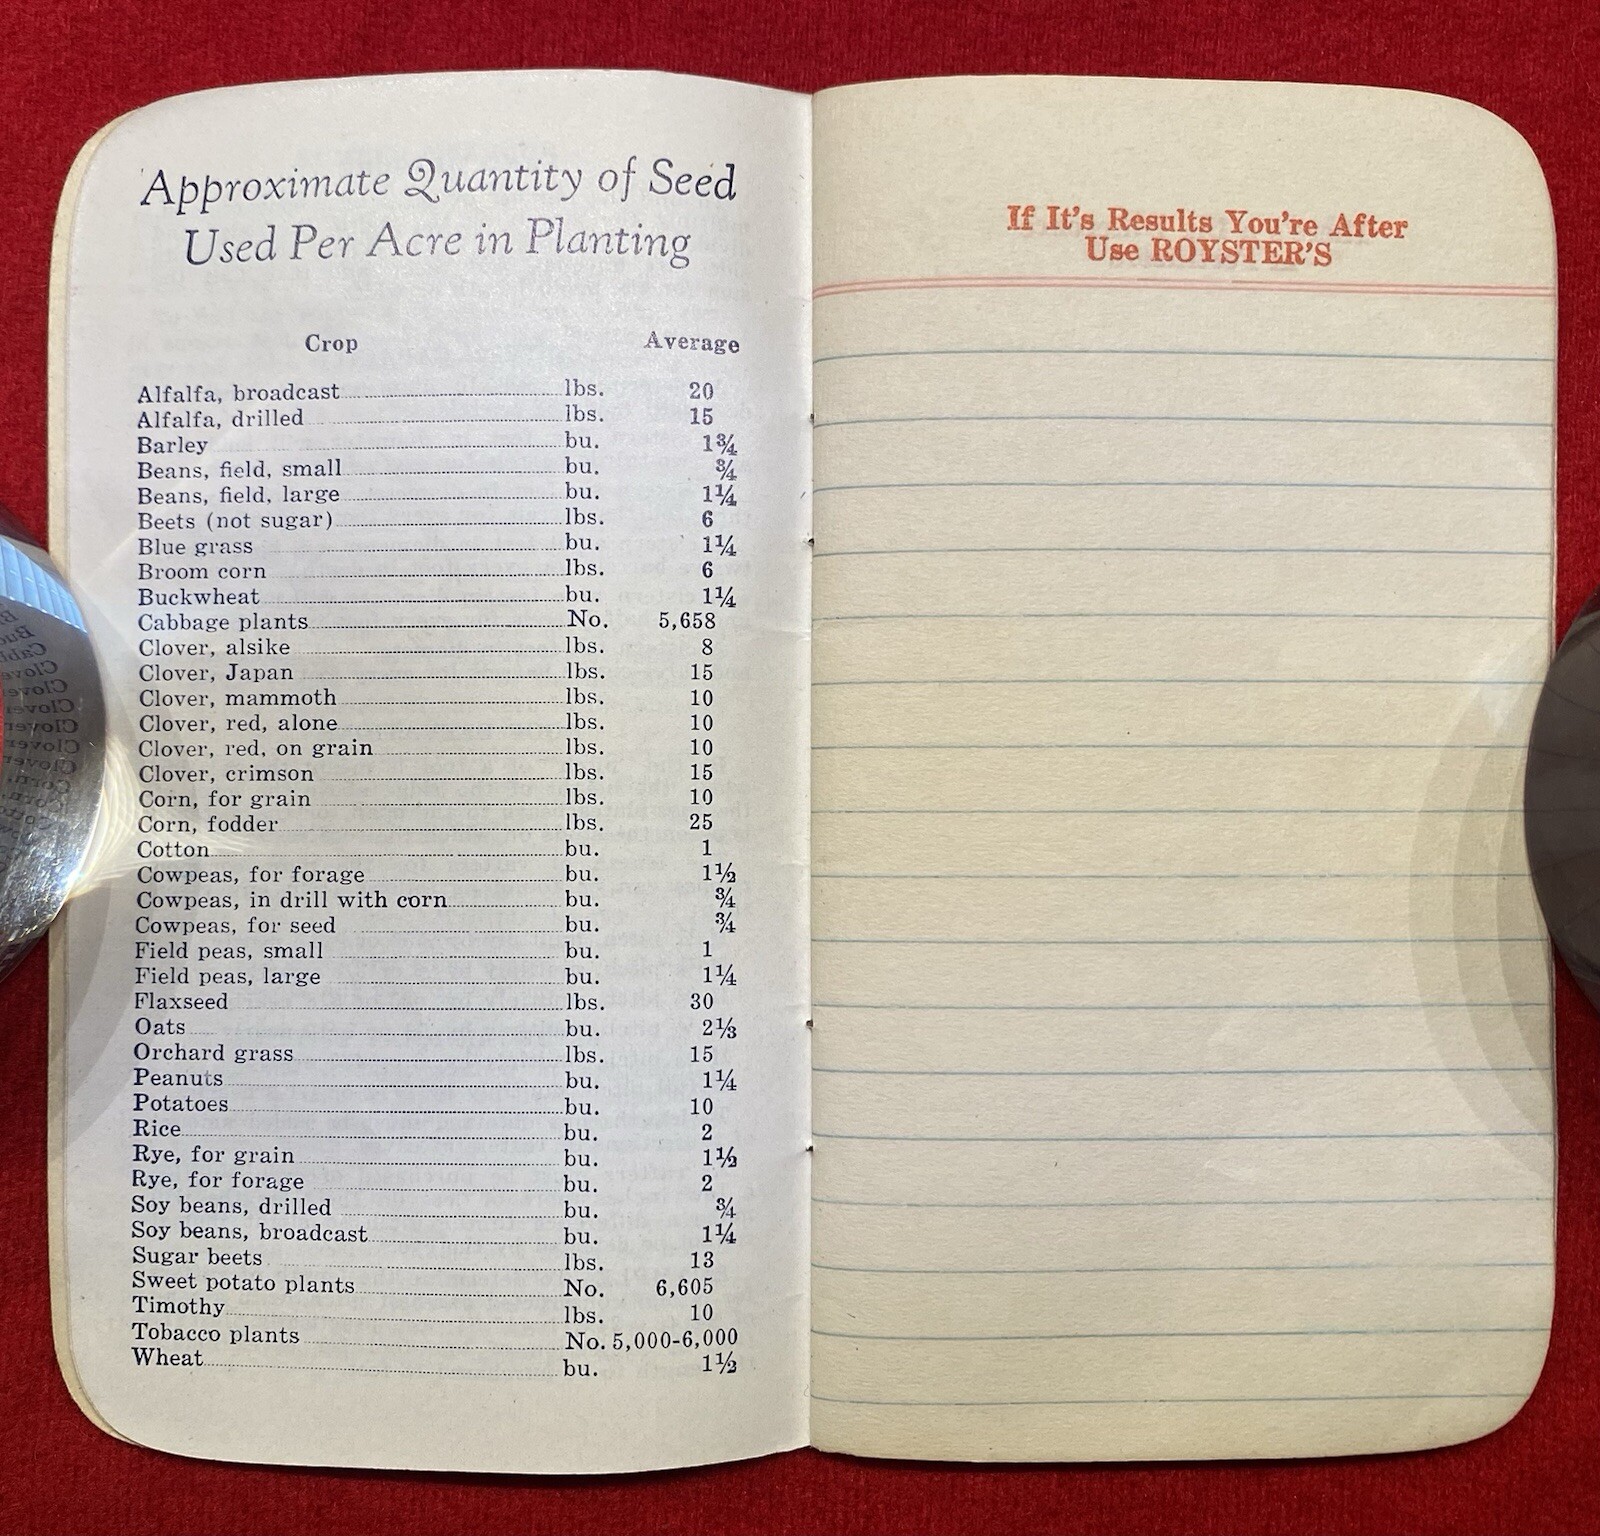 Approximate Quantity of Seed
Used Per Acre in Planting
Crop Average
Alfalfa, broadcast lbs. 20
Alfalfa, drilled lbs. 15
Barley bu. 1¾
Beans, field, small bu. ¾
Beans, field, large bu. 1¼
Beets (not sugar) lbs. 6
Blue grass bu. 1¼
Broom corn lbs. 6
Buckwheat bu. 1¼
Cabbage plants No. 5,658
Clover, alsike lbs. 8
Clover, Japan lbs. 15
Clover, mammoth lbs. 10
Clover, red, alone lbs. 10
Clover, red, on grain lbs. 10
Clover, crimson lbs. 15
Corn, for grain lbs. 10
Corn, fodder lbs. 25
Cotton bu. 1
Cowpeas, for forage bu. 1½
Cowpeas, in drill with corn bu. ¾
Cowpeas, for seed bu. ¾
Field peas, small bu. 1
Field peas, large bu. 1¼
Flaxseed lbs. 30
Oats bu. 2⅓
Orchard grass lbs. 15
Peanuts bu. 1¼
Potatoes bu. 10
Rice bu. 2
Rye, for grain bu. 1½
Rye, for forage bu. 2
Soy beans, drilled bu. ¾
Soy beans, broadcast bu. 1¼
Sugar beets lbs. 13
Sweet potato plants No. 6,605
Timothy lbs. 10
Tobacco plants No. 5,000-6,000
Wheat bu. 1½
If It's Results You're After
Use ROYSTER'S